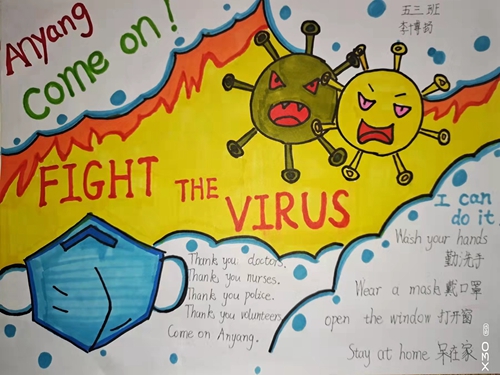 Anyang
come on!
五三班
李博韵
FIGHT THE VIRUS
I can
do it
Wash your hands
勤洗手
Wear a mask 戴口罩
open the window 打开窗
Stay at home 呆在家
Thank you doctors.
Thank you nurses.
Thank you police.
Thank you volunteers
Come on Anyang.